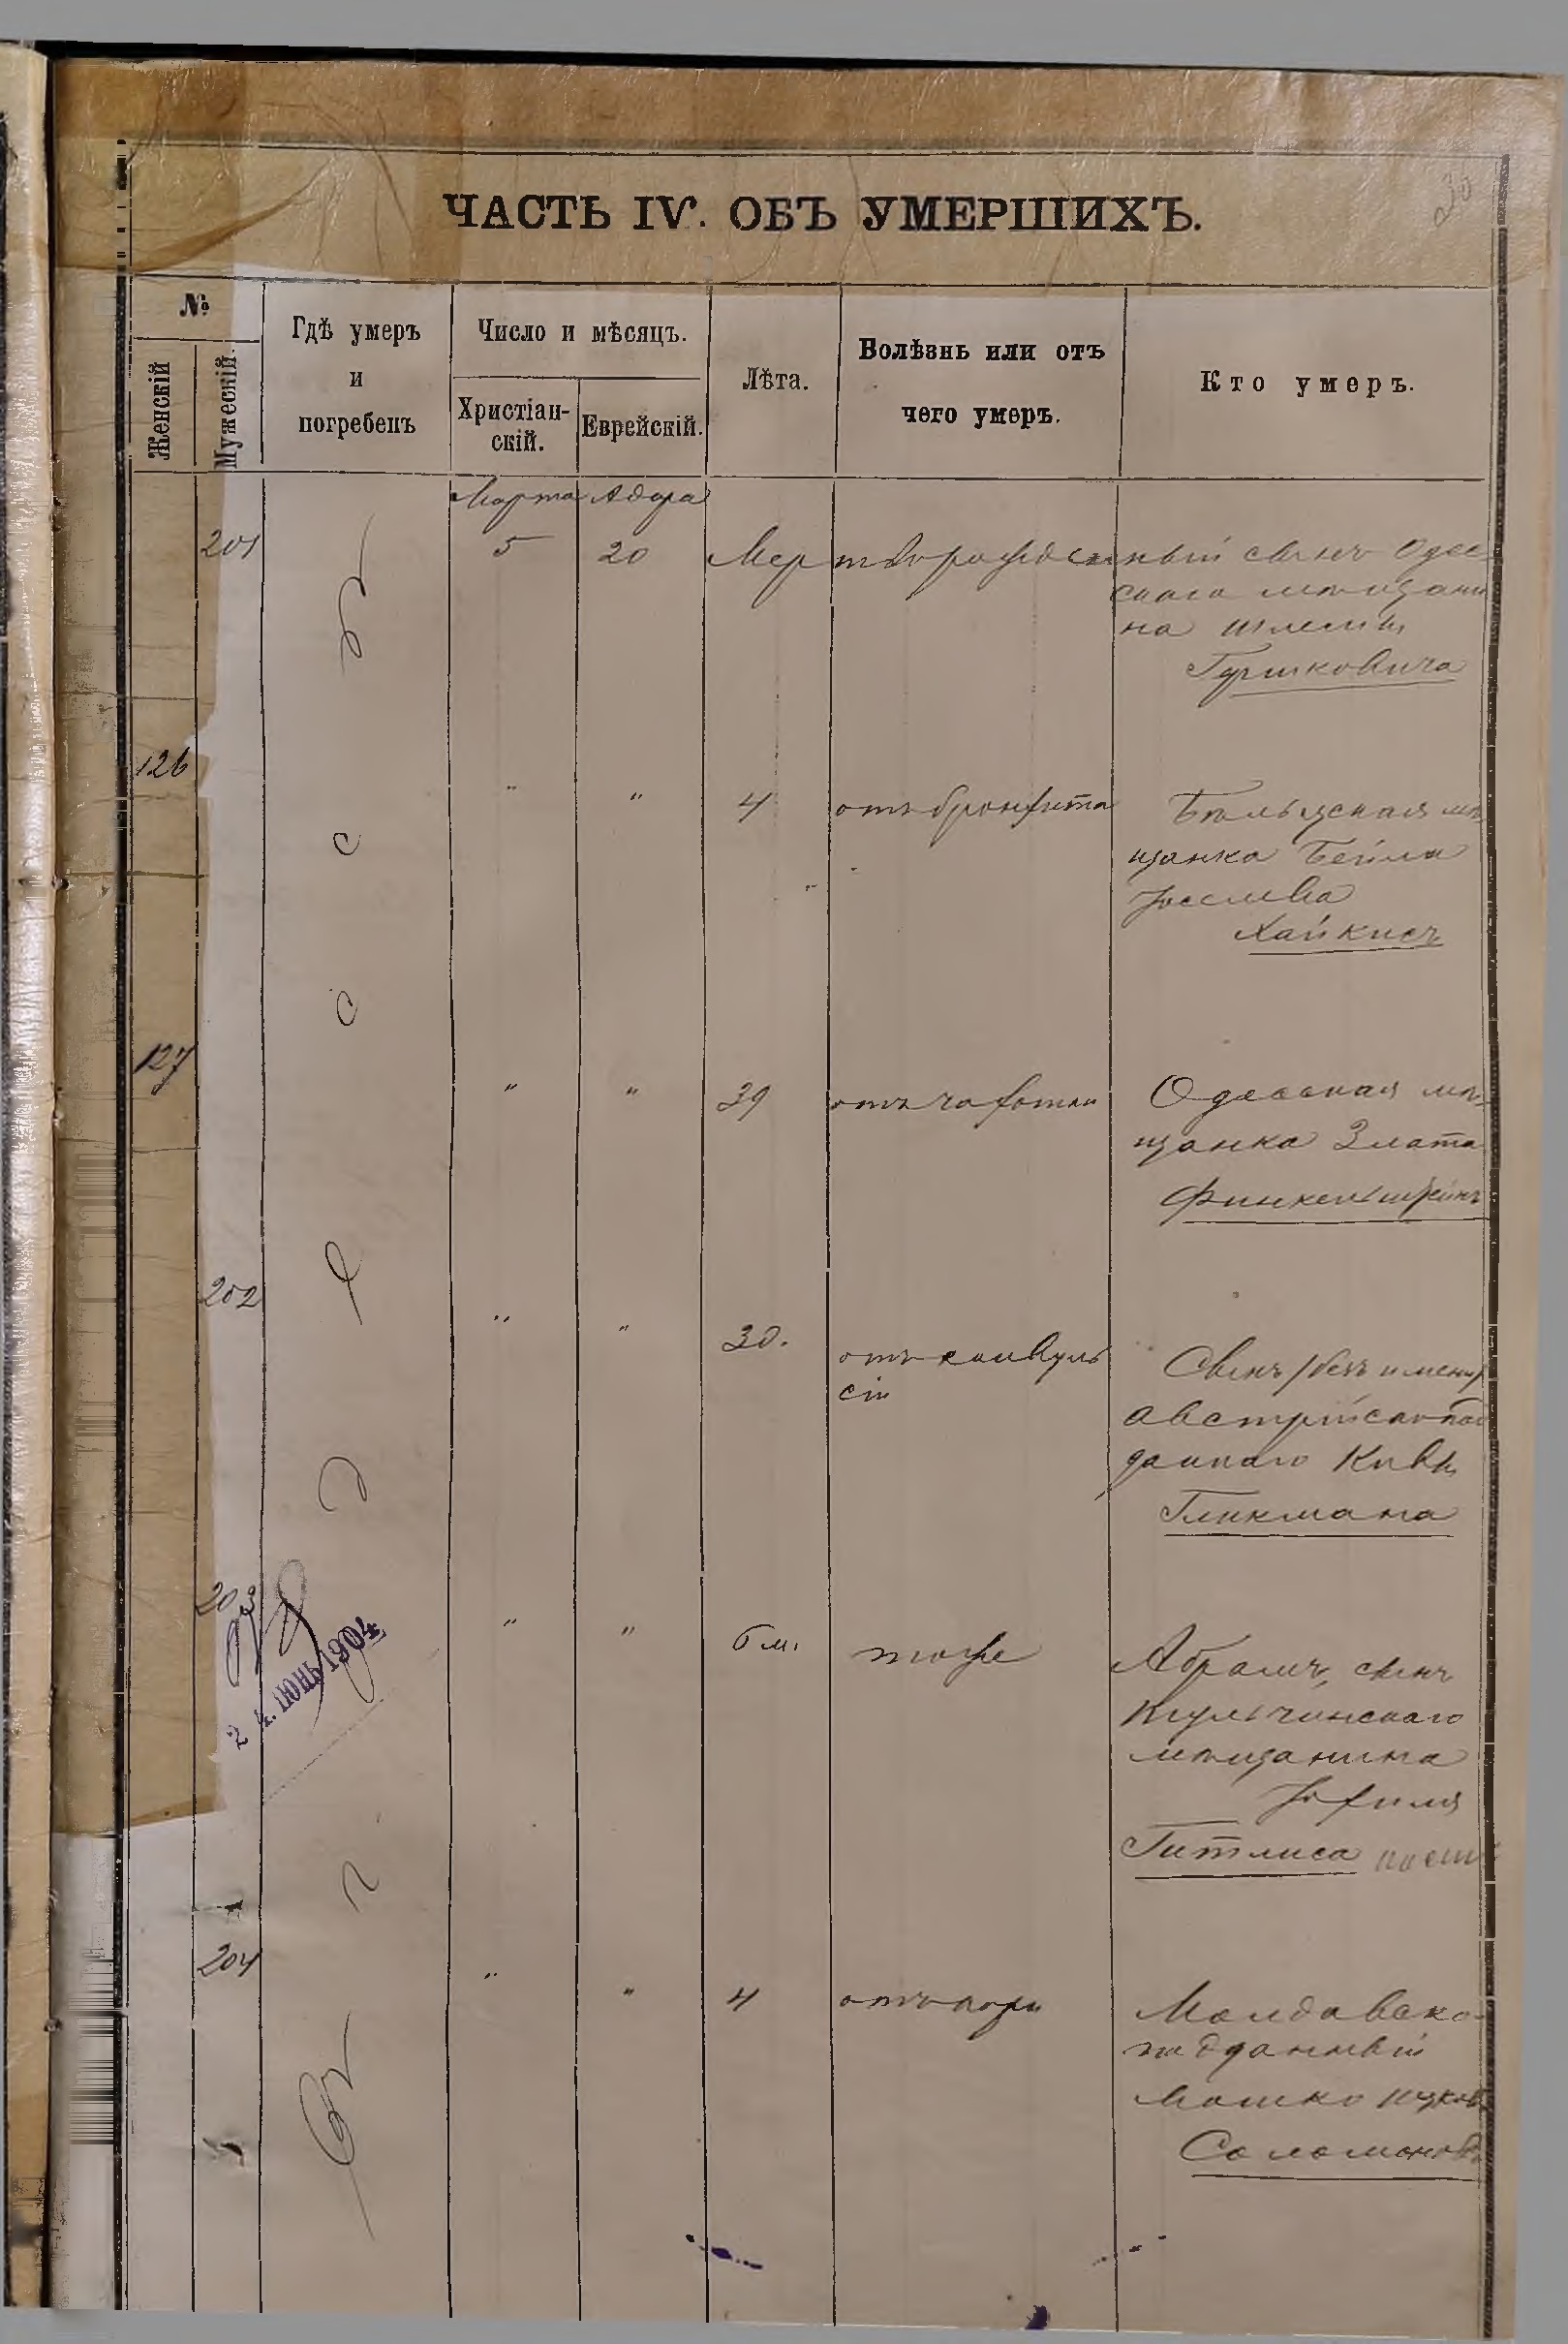 ЧАСТЬ IV. ОБЪ УМЕРШИХЪ.
№
Женскій
Мужескій.
Гдѣ умеръ
и
погребенъ
Число и мѣсяцъ.
Христіан-
скій.
Еврейскій.
Лѣта.
Болѣзнь или отъ
чего умеръ.
Кто умеръ.
Марта Адара
201 5 20 Мертворожденный сынъ Одес-
скаго мѣщани
на Шлемы
Гершковича
126 " " 4 отъ бронхита Бѣльцская мѣ
щанка Бейла
Іосслева
Хайкисъ
127 " " 39 отъ чахотки Одесская мѣ-
щанка Злата
Финкельштейнъ
202 " " 3д. отъ конвуль
сіи
Сынъ /безъ имени/
австрійско под
даннаго Кивы
Гликмана
203 " " 6 м. тоже Абрамъ, сынъ
Кульчинскаго
мѣщанина
Іохиля
Гитлиса
24. ІЮНЬ 1904
204 " " 4 отъ кори Молдавско-
подданный
Мошко Ицков.
Соломоновъ
Одесса